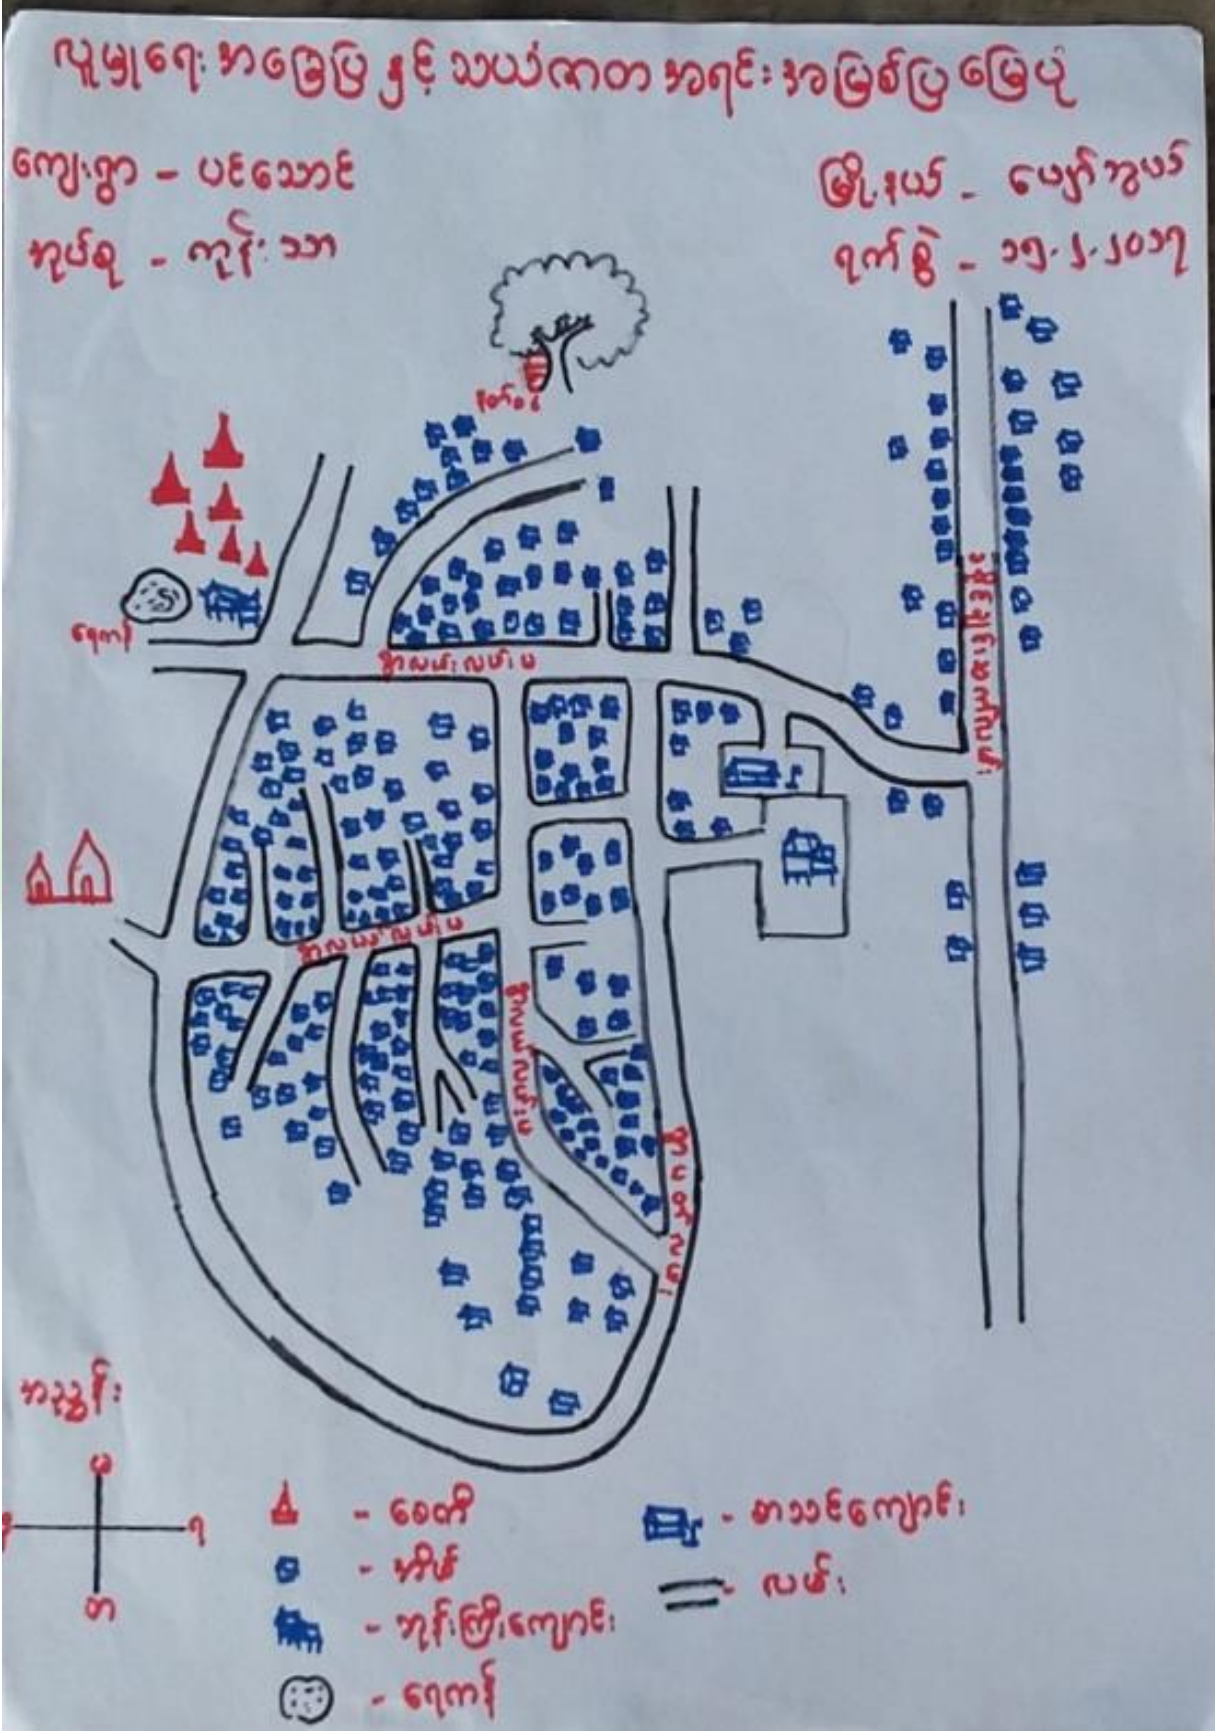 လူမှုရေး အခြေပြ နှင့် သယံဇာတ အရင်း အမြစ်ပြ မြေပုံ
ကျေးရွာ - ပင်သောင်
မြို့နယ် - ပျော်ဘွယ်
အုပ်စု - ကုန်းသာ
ရက်စွဲ - ၁၅.၂.၂၀၁၇
နတ်စင်
ရေကန်
ရွာလယ်လမ်းမ
ရွာလယ်လမ်းမ
ရွာပတ်လမ်း
အညွှန်း
မ
ရ
တ
- စေတီ
- အိမ်
- ဘုန်းကြီးကျောင်း
- ရေကန်
- စာသင်ကျောင်း
- လမ်း